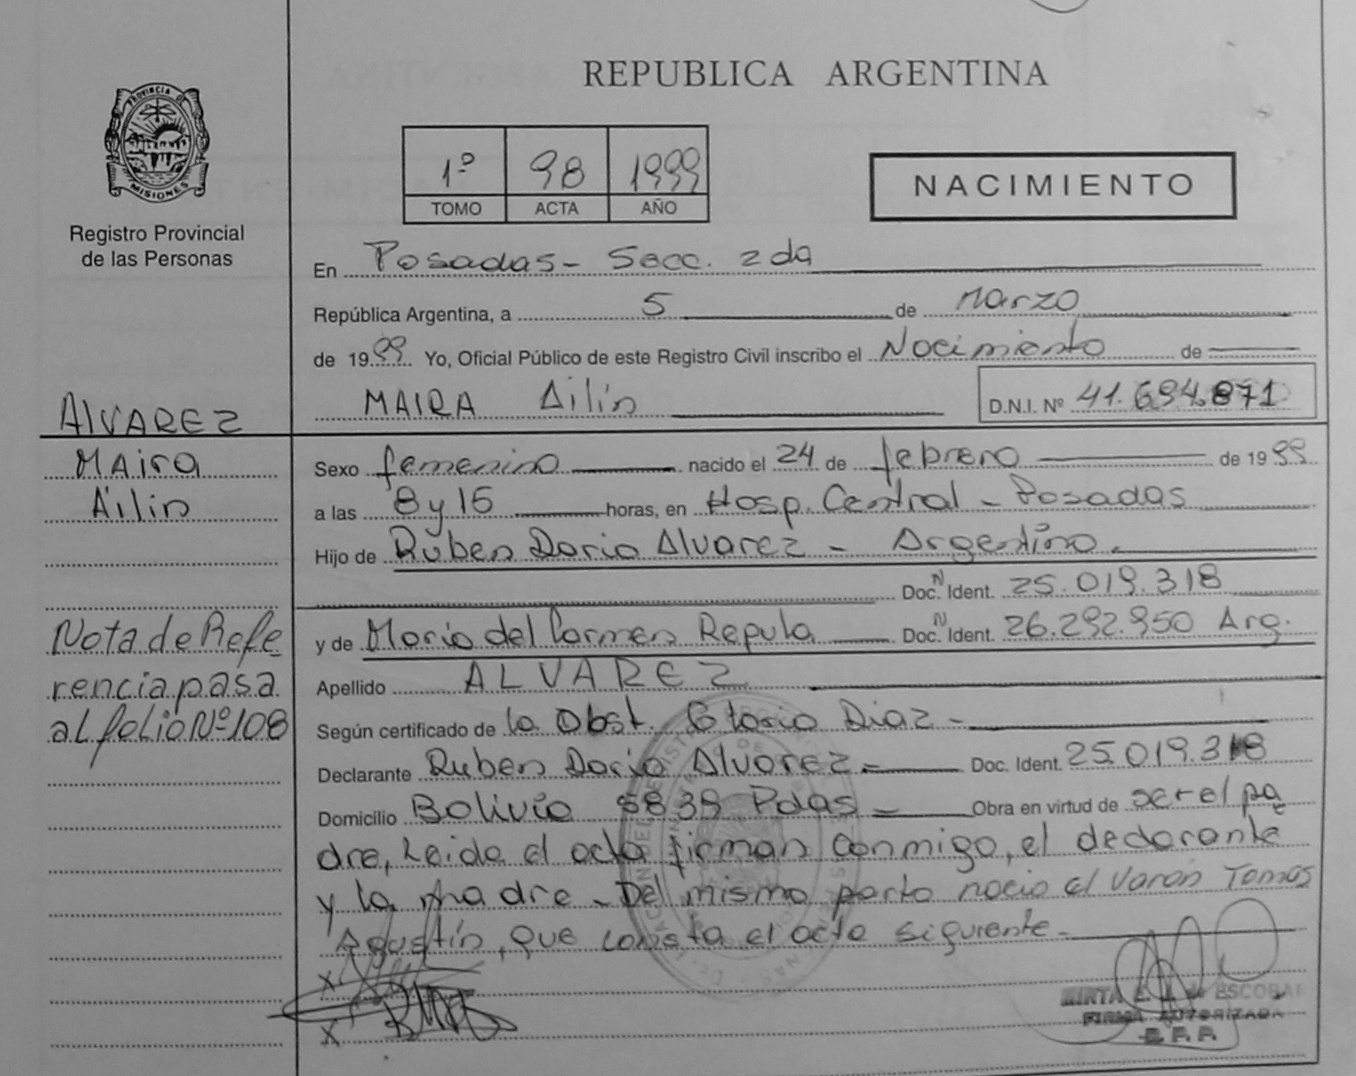 REPUBLICA ARGENTINA
PROVINCIA DE
MISIONES
Registro Provincial
de las Personas
1º 98 1999
TOMO ACTA AÑO
NACIMIENTO
En Posadas - Secc. 2da
República Argentina, a 5 de Marzo
de 1999 Yo, Oficial Público de este Registro Civil inscribo el Nacimiento de
MAIRA Ailin D.N.I. Nº 41.694.871
ALVAREZ
Maira
Ailin
Sexo femenino nacido el 24 de febrero de 1999
a las 8 y 15 horas, en Hosp. Central - Posadas
Hijo de Ruben Dario Alvarez - Argentino.
Doc. N Ident. 25.019.318
y de Maria del Carmen Repula Doc. N Ident. 26.292.950 Arg.
Apellido ALVAREZ
Nota de Refe
rencia pasa
al folio Nº 108
Según certificado de la Obst. Gloria Diaz -
Declarante Ruben Dario Alvarez - Doc. Ident. 25.019.318
Domicilio Bolivia 8839 Pdas - Obra en virtud de ser el pa
dre, Leida el acta firman conmigo, el declarante
y la madre - Del mismo parto nacio el varon Tomas
Agustín, que consta el acta siguiente -
x
x
MIRTA DE ESCOBAR
FIRMA AUTORIZADA